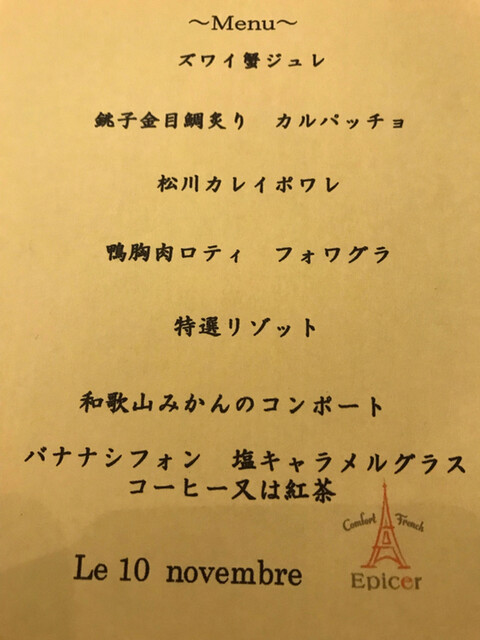 ～Menu～
ズワイ蟹ジュレ
銚子金目鯛炙り　カルパッチョ
松川カレイポワレ
鴨胸肉ロティ　フォワグラ
特選リゾット
和歌山みかんのコンポート
バナナシフォン　塩キャラメルグラス
コーヒー又は紅茶
Comfort French
Epicer
Le 10 novembre